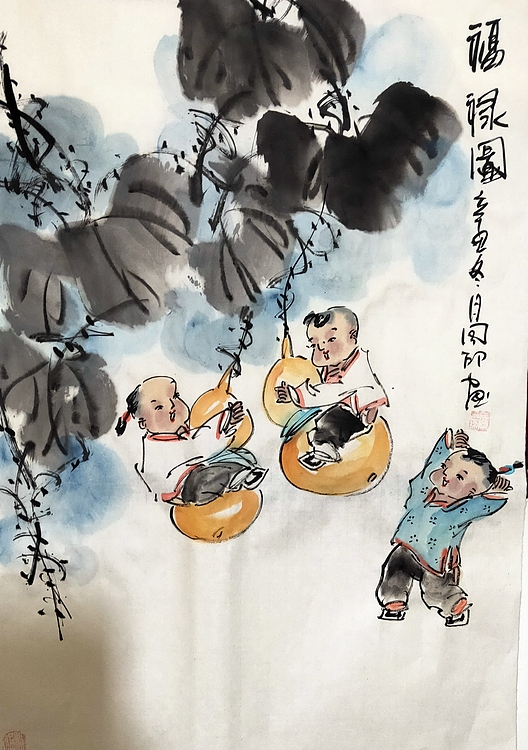 福禄圖辛丑冬月国印画